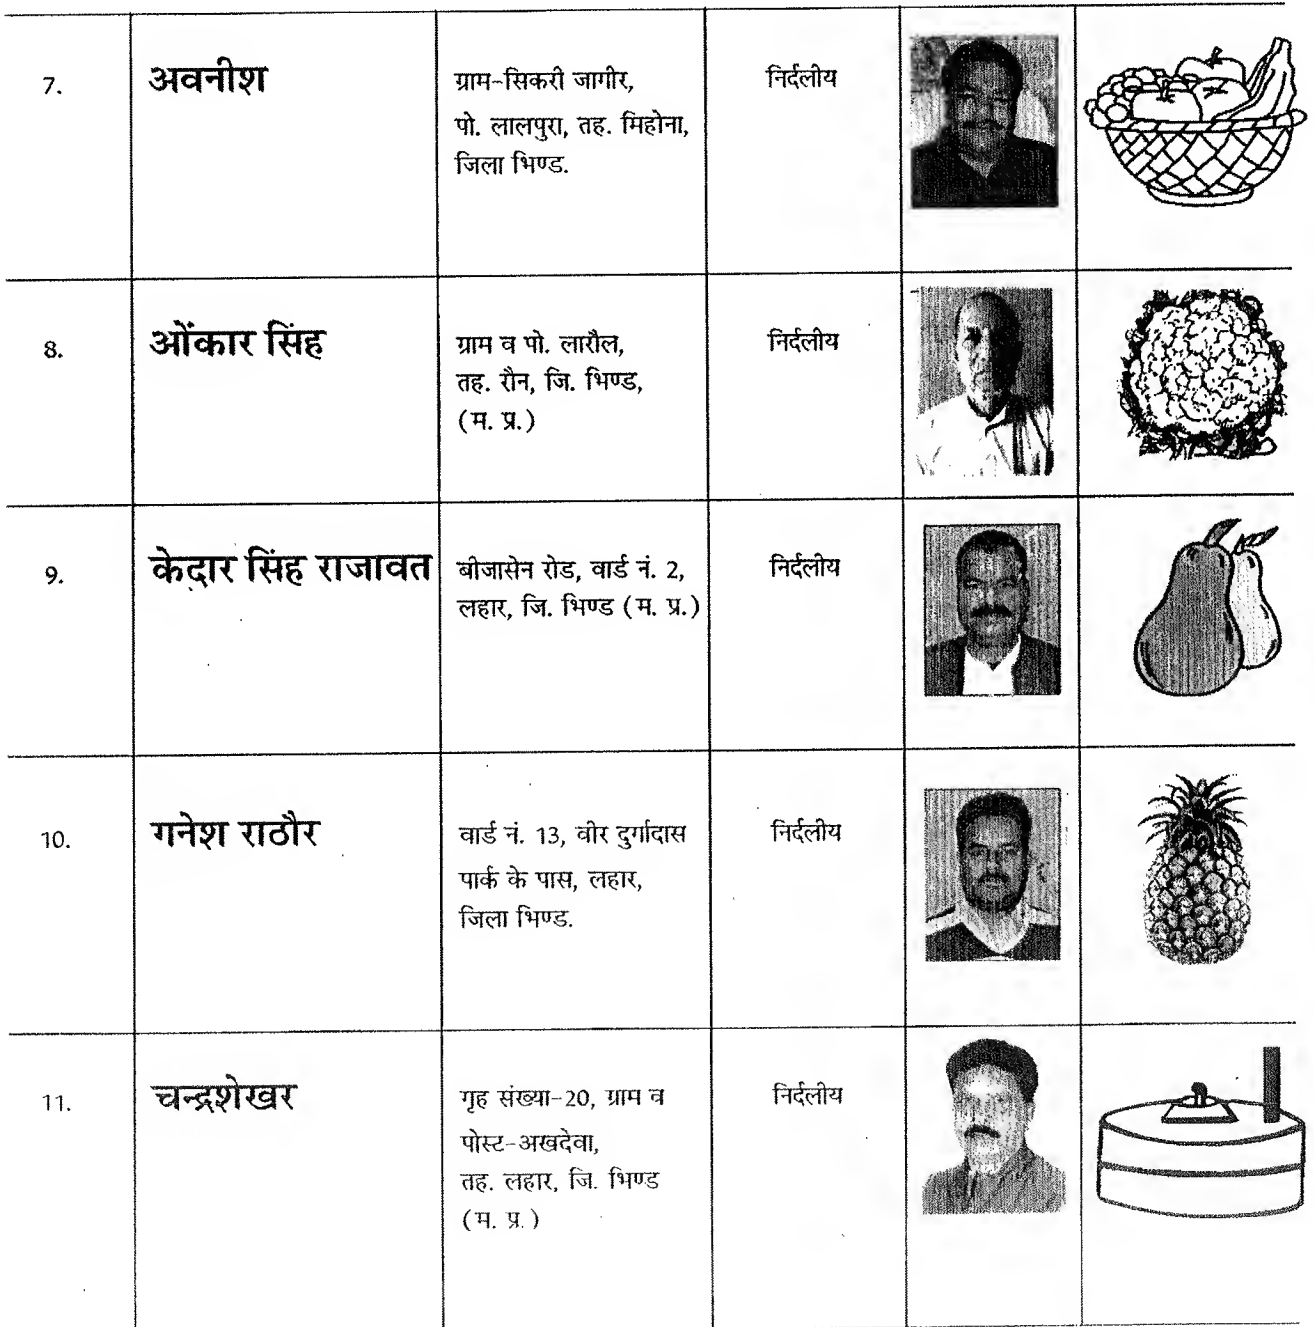 7.
अवनीश
ग्राम-सिकरी जागीर,
पो. लालपुरा, तह. मिहोना,
जिला भिण्ड.
निर्दलीय
8.
ओंकार सिंह
ग्राम व पो. लारौल,
तह. रौन, जि. भिण्ड,
(म. प्र.)
निर्दलीय
9.
केदार सिंह राजावत
बीजासेन रोड, वार्ड नं. 2,
लहार, जि. भिण्ड (म. प्र.)
निर्दलीय
10.
गनेश राठौर
वार्ड नं. 13, वीर दुर्गादास
पार्क के पास, लहार,
जिला भिण्ड.
निर्दलीय
11.
चन्द्रशेखर
गृह संख्या-20, ग्राम व
पोस्ट-अखदेवा,
तह. लहार, जि. भिण्ड
(म. प्र.)
निर्दलीय